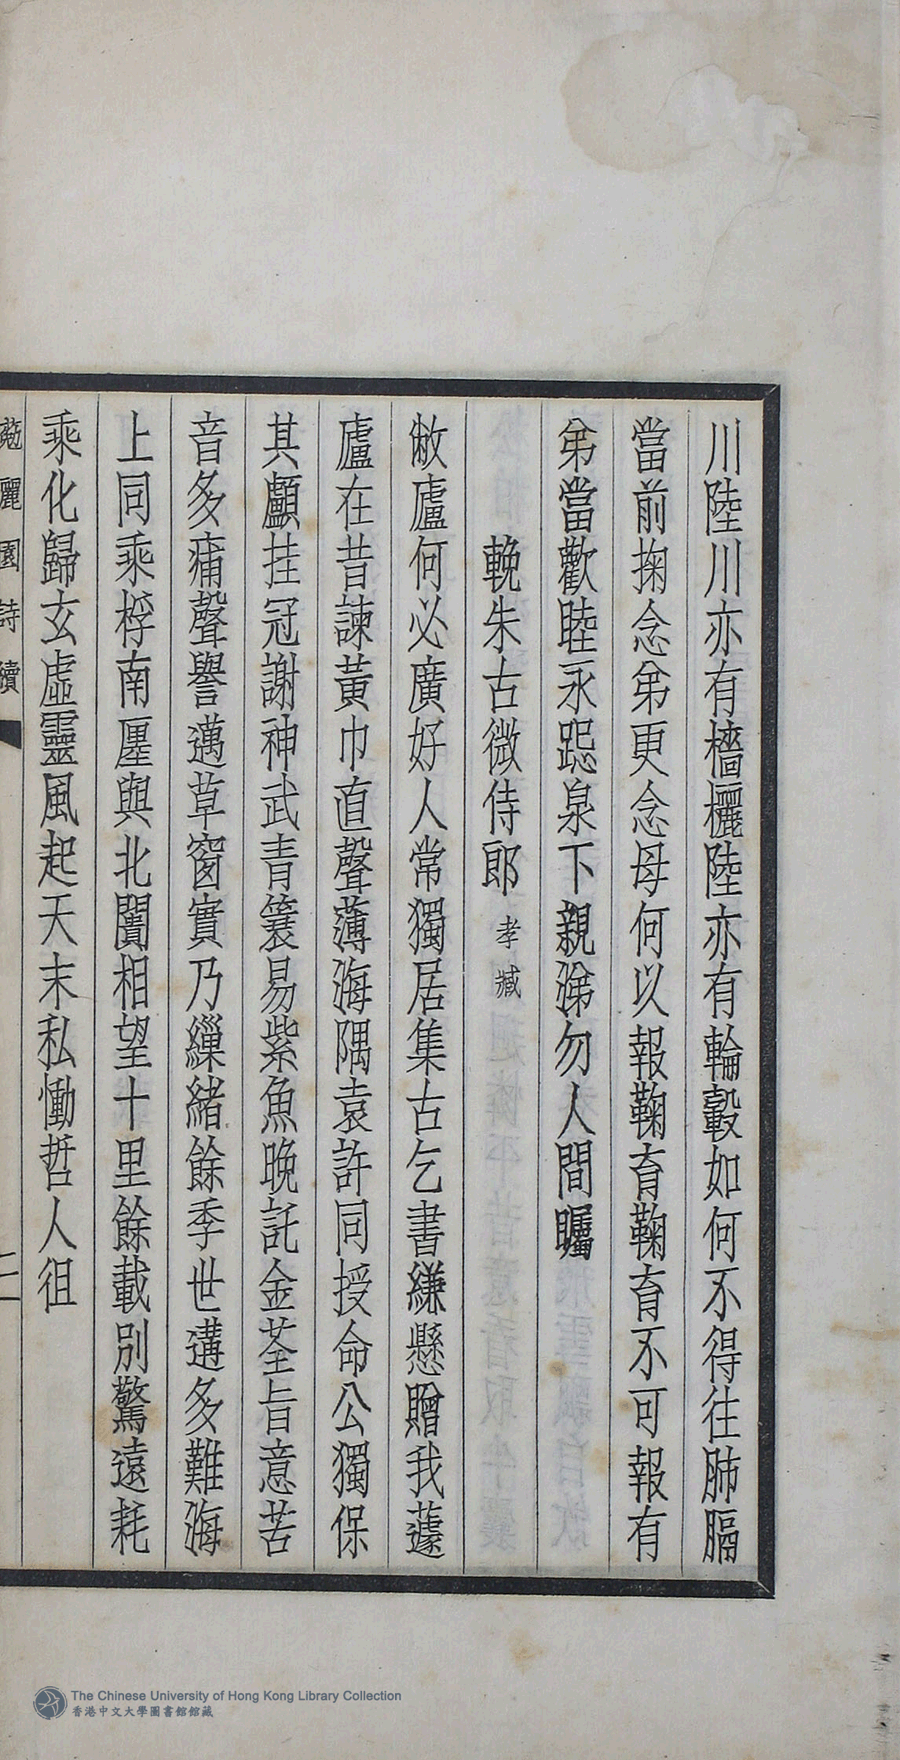 川陸川亦有檣欐陸亦有輪轂如何不得往肺膈
當前掬念弟更念母何以報鞠育鞠育不可報有
弟當歡睦永跽泉下親涕勿人間矚
輓朱古微侍郎孝臧
敝廬何必廣好人常獨居集古乞書縑懸贈我蘧
廬在昔諫黃巾直聲薄海隅袁許同授命公獨保
其顱挂冠謝神武青簑易紫魚晚託金荃旨意苦
音多痡聲譽邁草窗實乃繅緒餘季世遘多難海
上同乘桴南廛與北闠相望十里餘載別驚遠耗
乘化歸玄虛靈風起天末私慟哲人徂
麗園詩續
The Chinese University of Hong Kong Library Collection
香港中文大學圖書館館藏